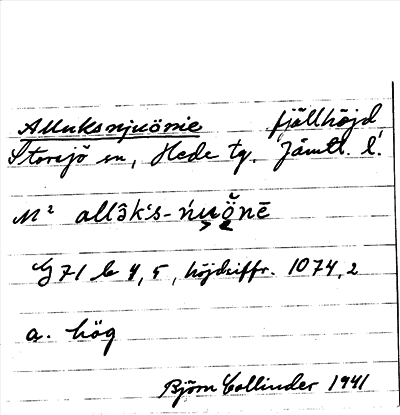 Alluksnjuönie fjällhöjd
Storsjö sn, Hede tg. Jämtl. l.
M² allâk's-ńu̯ö̆nē
G 71 b 4, 5, höjdsiffr. 1074,2
a. hög
Björn Collinder 1941